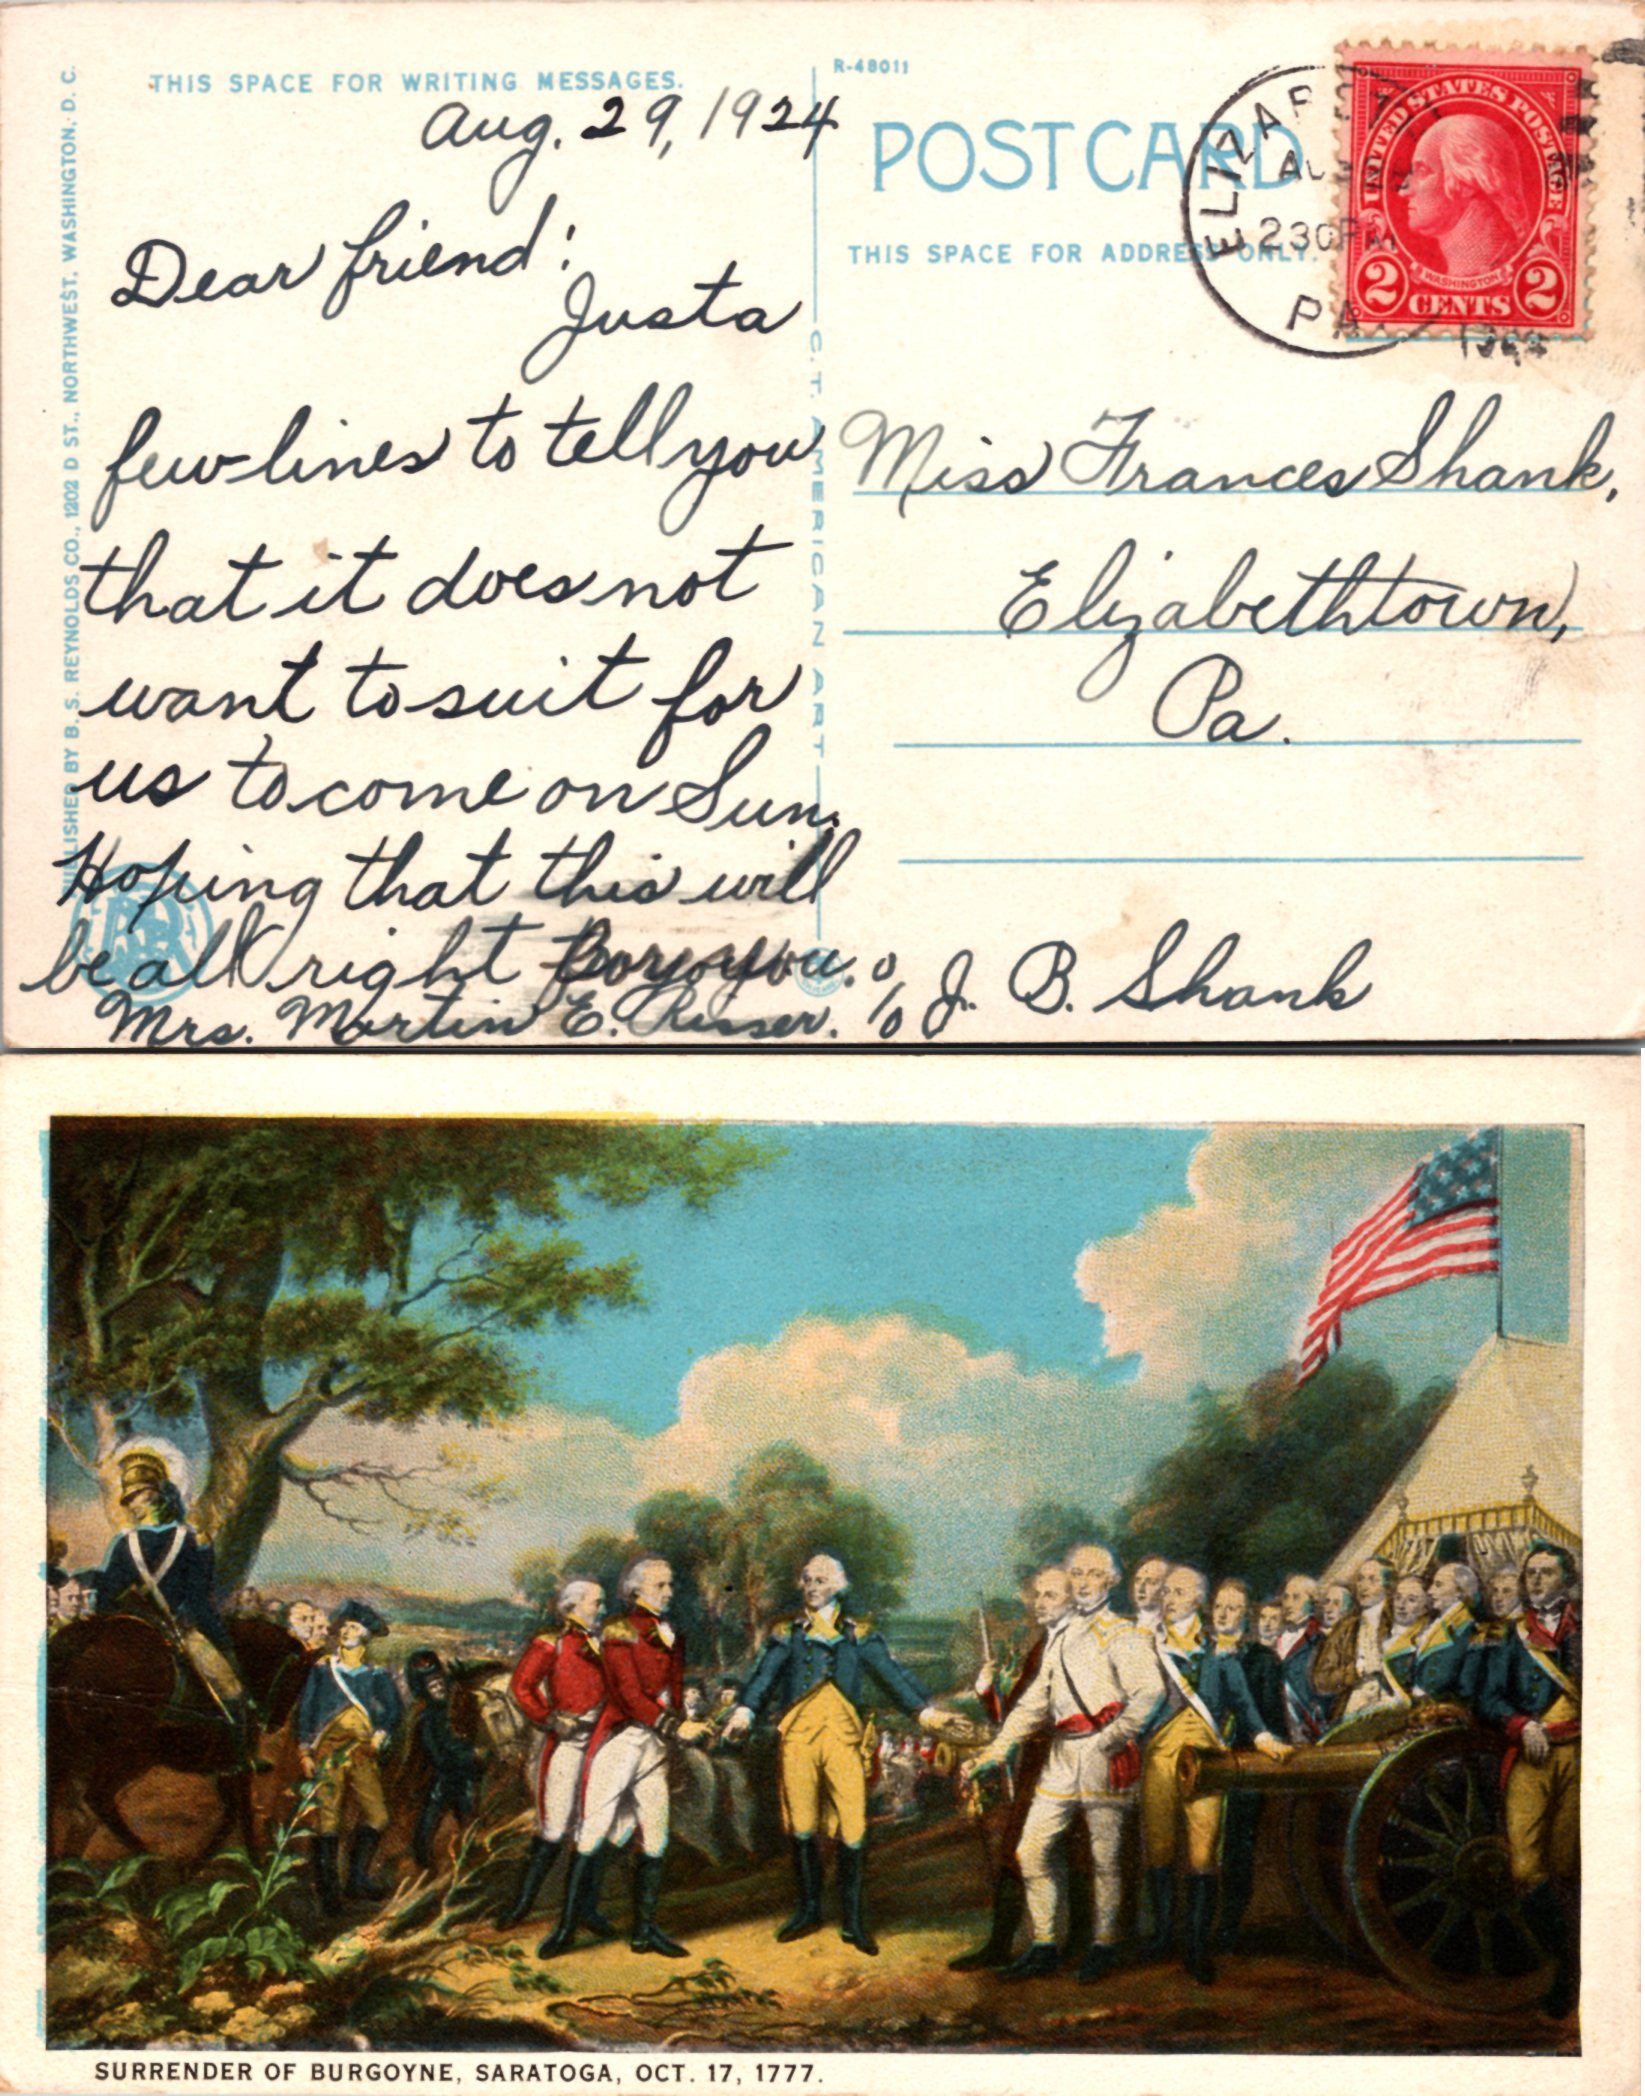 THIS SPACE FOR WRITING MESSAGES.
Aug. 29, 1924
Dear friend:
Justa
few lines to tell you
that it does not
want to suit for
us to come on Sun.
Hoping that this will
be all right for you.
Mrs. Martin E. Risser.
PUBLISHED BY B. S. REYNOLDS CO., 1202 D ST., NORTHWEST, WASHINGTON, D. C.
C. T. AMERICAN ART
R-48011
POST CARD
THIS SPACE FOR ADDRESS ONLY.
230 PM
PA.
UNITED STATES POSTAGE
WASHINGTON
2 CENTS 2
Miss Frances Shank,
Elizabethtown,
Pa.
c/o J. B. Shank
SURRENDER OF BURGOYNE, SARATOGA, OCT. 17, 1777.